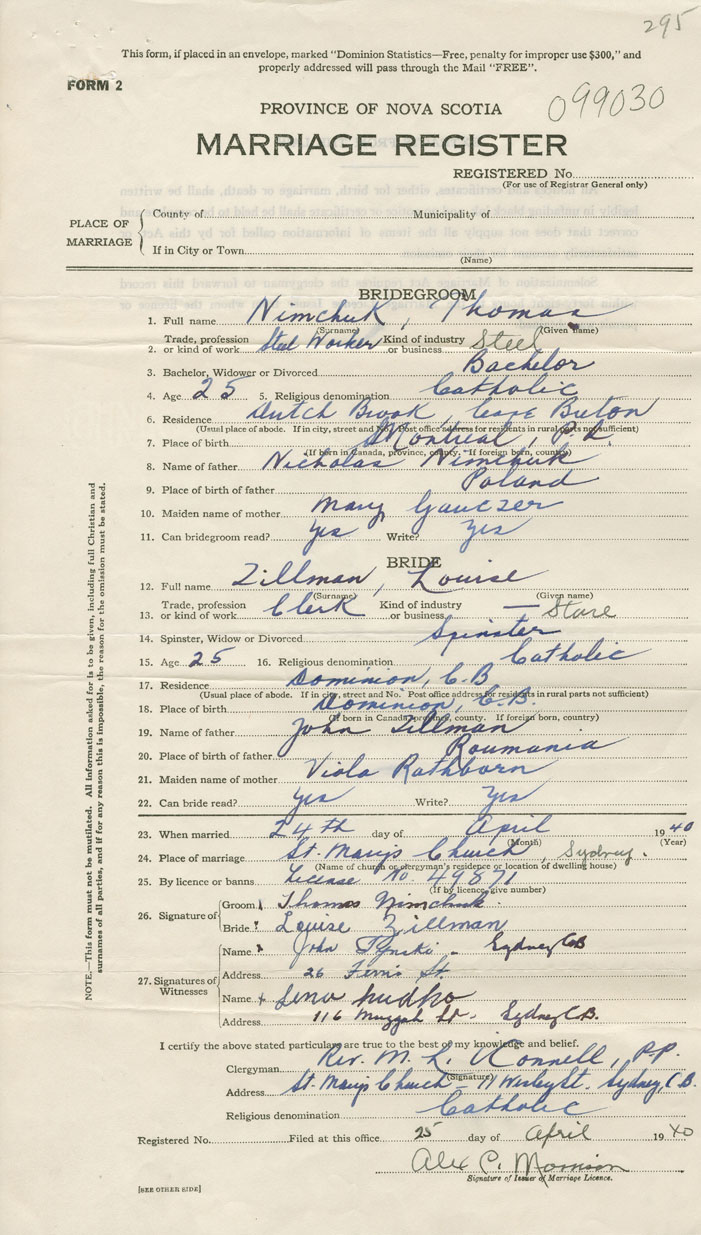 295
This form, if placed in an envelope, marked "Dominion Statistics—Free, penalty for improper use $300," and
properly addressed will pass through the Mail "FREE".
FORM 2
099030
PROVINCE OF NOVA SCOTIA
MARRIAGE REGISTER
REGISTERED No.
(For use of Registrar General only)
PLACE OF MARRIAGE
County of Municipality of
If in City or Town
(Name)
BRIDEGROOM
1. Full name Nimchuk, Thomas
(Surname) (Given name)
2. Trade, profession or kind of work Steel Worker Kind of industry or business Steel
3. Bachelor, Widower or Divorced Bachelor
4. Age 25 5. Religious denomination Catholic
6. Residence Dutch Brook, Cape Breton
(Usual place of abode. If in city, street and No. Post office address for residents in rural parts not sufficient)
7. Place of birth Montreal, P.Q.
(If born in Canada, province, county. If foreign born, country)
8. Name of father Nicholas Nimchuk
9. Place of birth of father Poland
10. Maiden name of mother Mary
11. Can bridegroom read? Yes Write? Yes
BRIDE
12. Full name Zillman, Louise
(Surname) (Given name)
13. Trade, profession or kind of work Clerk Kind of industry or business — Store
14. Spinster, Widow or Divorced Spinster
15. Age 25 16. Religious denomination Catholic
17. Residence Dominion, C.B
(Usual place of abode. If in city, street and No. Post office address for residents in rural parts not sufficient)
18. Place of birth Dominion, C.B.
(If born in Canada, province, county. If foreign born, country)
19. Name of father John Zillman
20. Place of birth of father Roumania
21. Maiden name of mother Viola Rathborn
22. Can bride read? Yes Write? Yes
23. When married 24th day of April 1940
(Month) (Year)
24. Place of marriage St. Mary's Church, Sydney.
(Name of church or clergyman's residence or location of dwelling house)
25. By licence or banns License No. 49871
(If by licence, give number)
26. Signature of
Groom Thomas Nimchuk.
Bride Louise Zillman
27. Signatures of Witnesses
Name John Sydney CB
Address 26 St.
Name
Address 116 St. Sydney C.B.
I certify the above stated particulars are true to the best of my knowledge and belief.
Clergyman Rev. M. L. O'Connell, P.P.
(Signature)
Address St. Mary's Church – 71 Wesley St. Sydney, C.B.
Religious denomination Catholic
Registered No. Filed at this office 25 day of April 1940
Alex C. Morrison
Signature of Issuer of Marriage Licence.
[SEE OTHER SIDE]
NOTE.—This form must not be mutilated. All information asked for is to be given, including full Christian and
surnames of all parties, and if for any reason this is impossible, the reason for the omission must be stated.